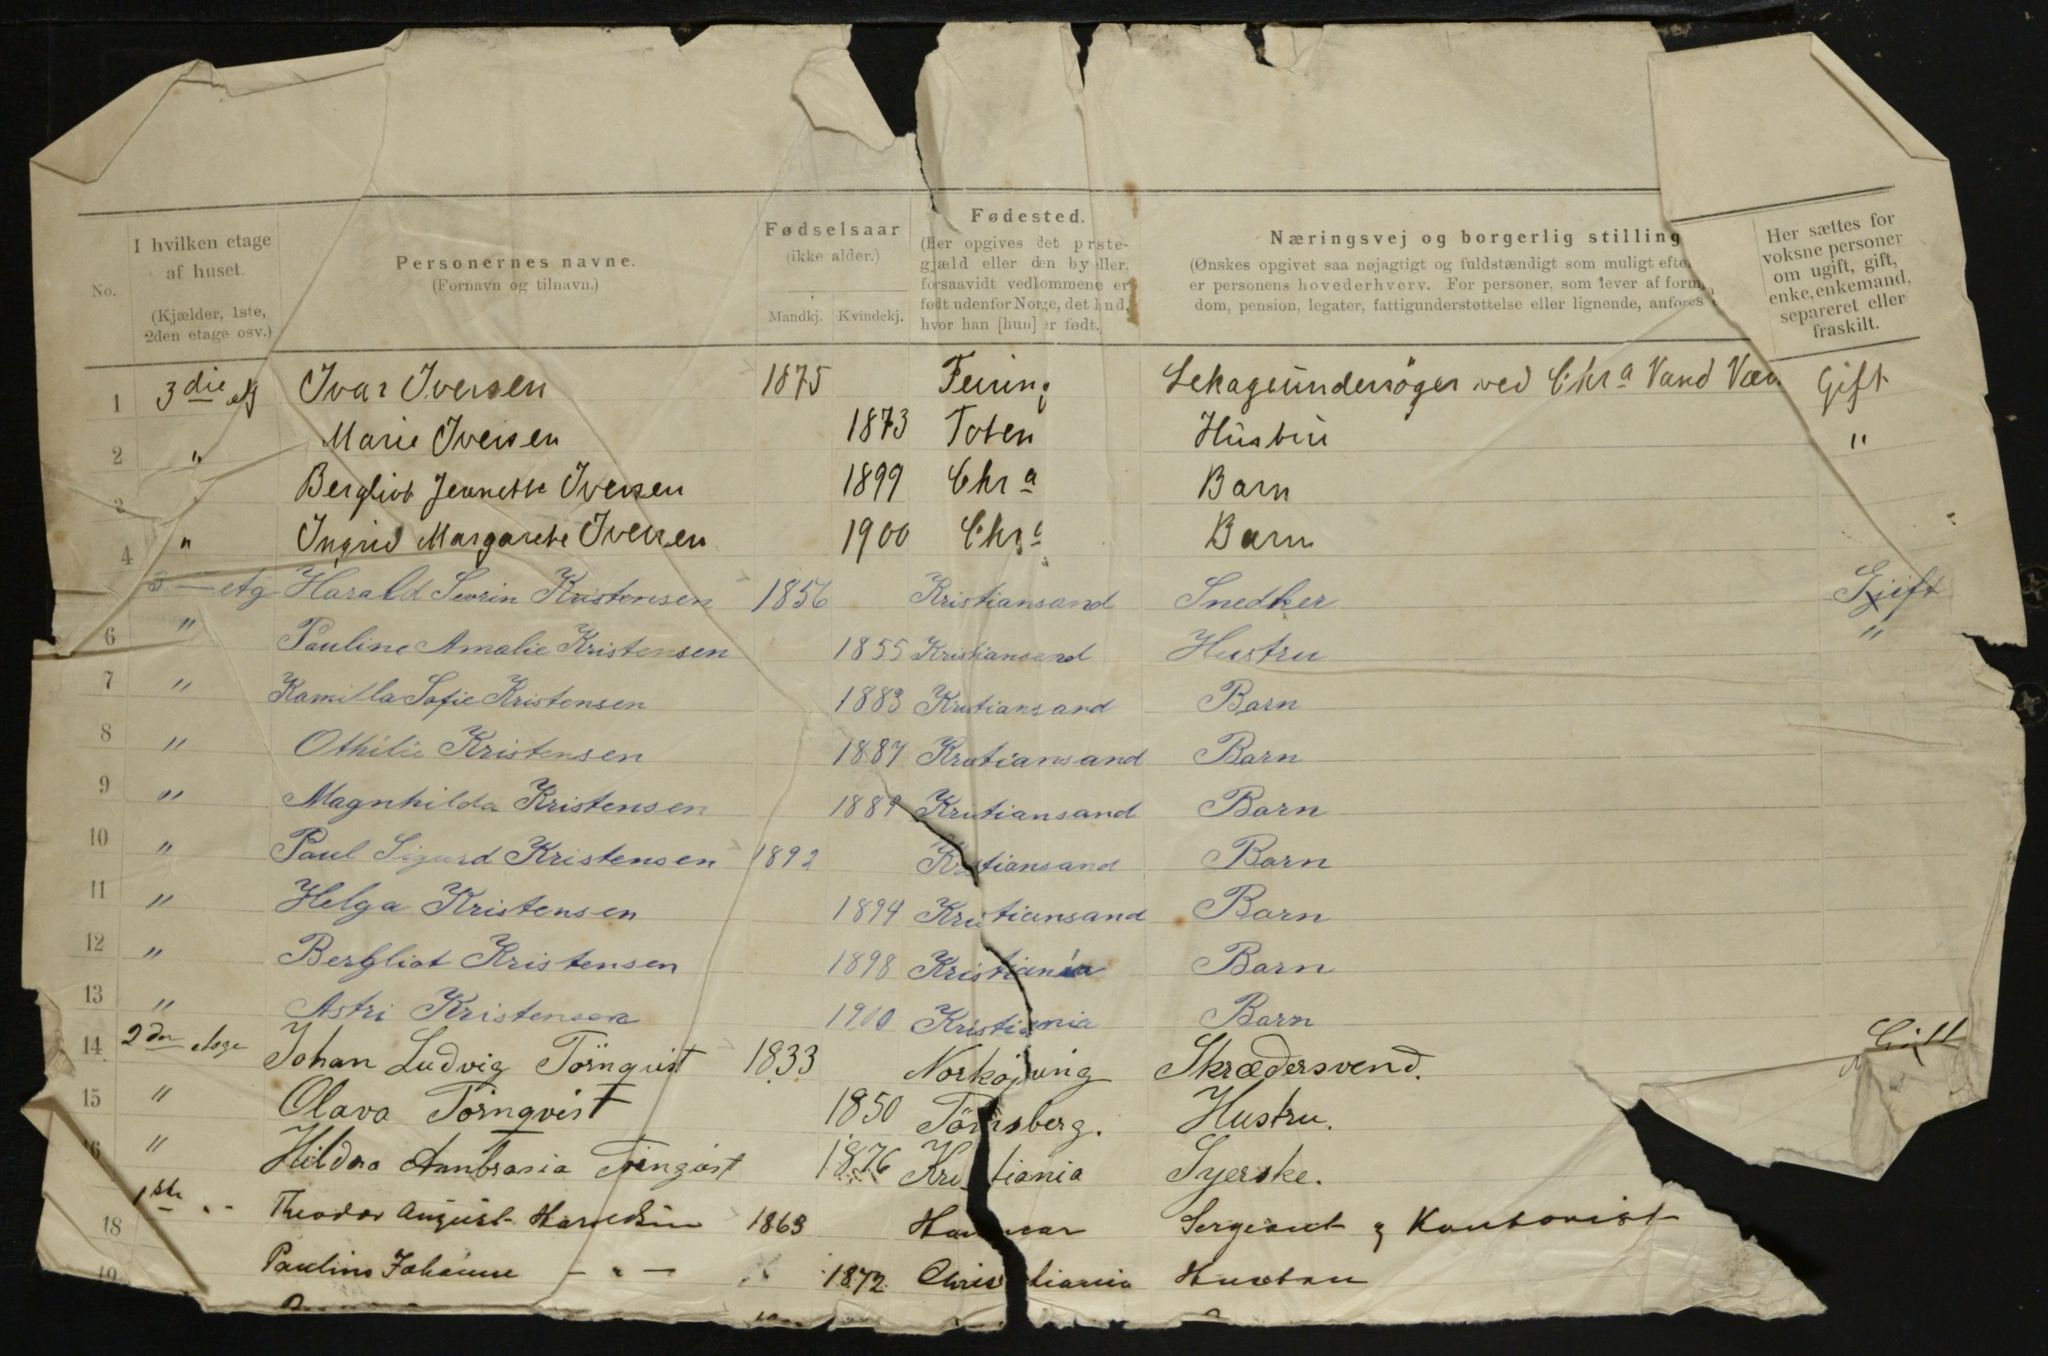 No.
I hvilken etage
af huset.
(Kjælder, 1ste,
2den etage osv.)
Personernes navne.
(Fornavn og tilnavn.)
Fødselsaar
(ikke alder.)
Mandkj. Kvindekj.
Fødested.
(Her opgives det prste-
gjæld eller den by eller,
forsaavidt vedkommende er
født udenfor Norge, det land,
hvor han [hun] er født.)
Næringsvej og borgerlig stilling
(Ønskes opgivet saa nøjagtigt og fuldstændigt som muligt efte
er personens hovederhverv. For personer, som lever af form
dom, pension, legater, fattigunderstøttelse eller lignende, anføres
Her sættes for
voksne personer
om ugift, gift,
enke, enkemand,
separeret eller
fraskilt.
1 3die etg Ivar Iversen 1875 Feiring Lekageundersøger ved Chra Vand Væ Gift
2 " Marie Iversen 1873 Toten Hustru "
3 Bergliot Jeanette Iversen 1899 Chra Barn
4 " Ingrid Margarete Iversen 1900 Chra Barn
3 — etg Harald Sevrin Kristensen 1856 Kristiansand Snedker Gjift
6 " Pauline Amalie Kristensen 1855 Kristiansand Hustru "
7 " Kamilla Sofie Kristensen 1883 Kristiansand Barn
8 " Othilie Kristensen 1887 Kristiansand Barn
9 " Magnhilda Kristensen 1889 Kristiansand Barn
10 " Paul Sigurd Kristensen 1892 Kristiansand Barn
11 " Helga Kristensen 1894 Kristiansand Barn
12 " Bergliot Kristensen 1898 Kristiania Barn
13 " Astri Kristensen 1900 Kristiania Barn
14 2den etage Johan Ludvig Törnqvist 1833 Norköping Skrædersvend. Gift
15 " Olava Törnqvist 1850 Tönsberg. Hustru.
16 " Hildra Ambrosia Törnqvist 1876 Kristiania Syerske.
1ste " Theodor August 1863 Hammar Sergeant og Kontorist
18
Pauline Johanne — " — 1872 Christiania Hustru
19